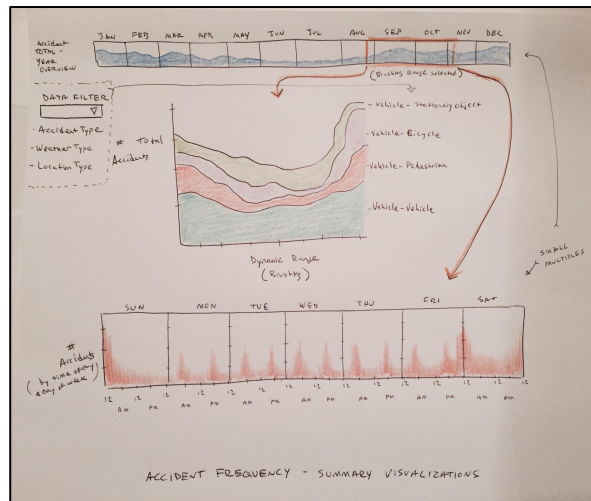 JAN FEB MAR APR MAY JUN JUL AUG SEP OCT NOV DEC
Accident
TOTAL -
YEAR
OVERVIEW
(Brushing Range selected)
DATA FILTER
- Accident Type
- Weather Type
- Location Type
# Total
Accidents
- Vehicle - Stationary object
- Vehicle - Bicycle
- Vehicle - Pedestrian
- Vehicle - Vehicle
Dynamic Range
(Brushing)
SMALL
MULTIPLES
SUN MON TUE WED THU FRI SAT
#
Accidents
(by time of day
& day of week)
12 12 12 12 12 12 12 12 12 12 12 12 12 12 12
AM PM AM PM AM PM AM PM AM PM AM PM AM PM
ACCIDENT FREQUENCY - SUMMARY VISUALIZATIONS